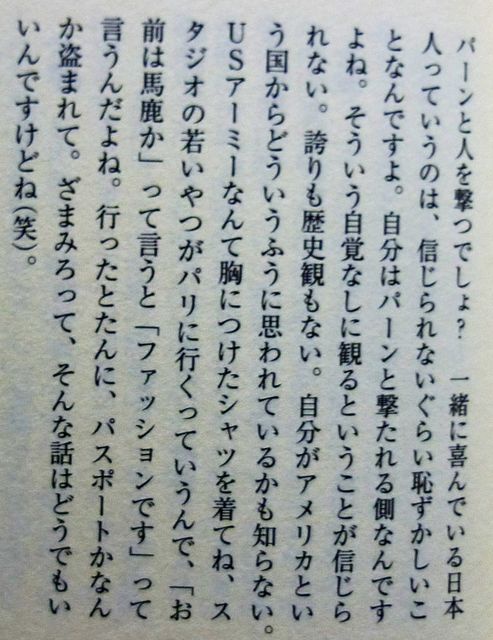 パーンと人を撃つでしょ？　一緒に喜んでいる日本
人っていうのは、信じられないぐらい恥ずかしいこ
となんですよ。自分はパーンと撃たれる側なんです
よね。そういう自覚なしに観るということが信じら
れない。誇りも歴史観もない。自分がアメリカとい
う国からどういうふうに思われているかも知らない。
ＵＳアーミーなんて胸につけたシャツを着てね、ス
タジオの若いやつがパリに行くっていうんで、「お
前は馬鹿か」って言うと「ファッションです」って
言うんだよね。行ったとたんに、パスポートかなん
か盗まれて。ざまみろって、そんな話はどうでもい
いんですけどね（笑）。